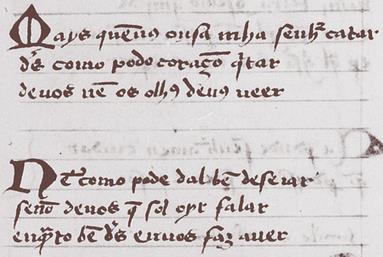 Mays quẽuꝯ ousa mha senhʳ catar
d's como pode coraçõ q̃tar
deuos nẽ os olhꝯ deuꝯ ueer
Nẽ como pode dal bẽ deseiar
senõ deuos q̃ sol oyr falar
enq̃to bẽ d's enuos faz auer